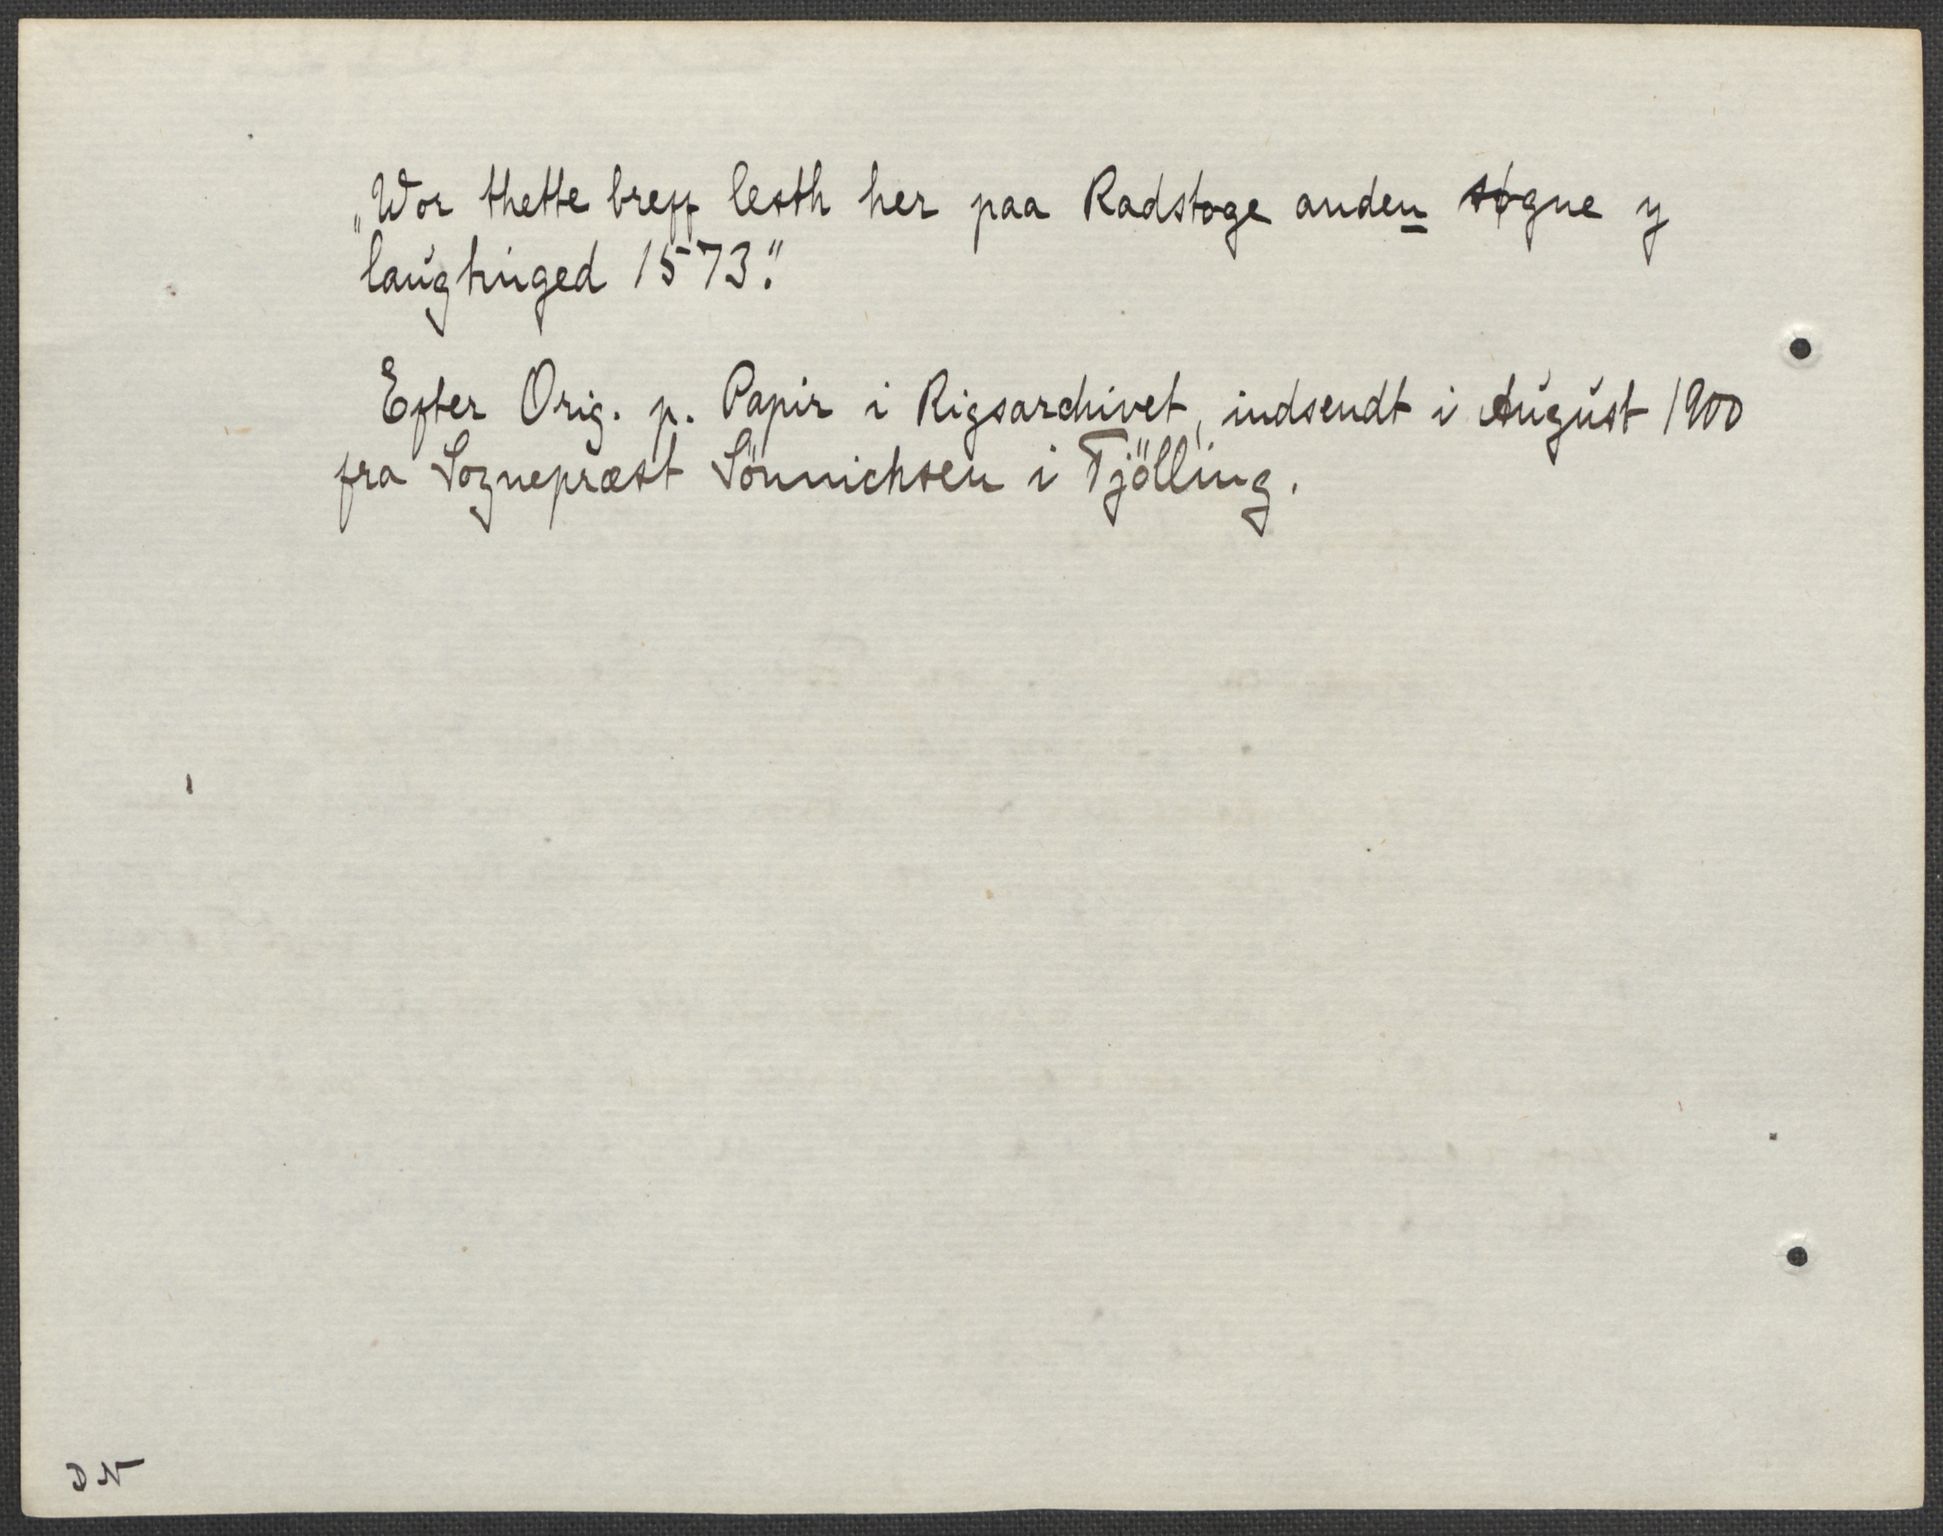 „Wor thette breff lesth her paa Radstoge anden søgne y
laugtinged 1573."
Efter Orig. p. Papir i Rigsarchivet, indsendt i August 1900
fra Sognepræst Sönnichsen i Tjölling.
DN